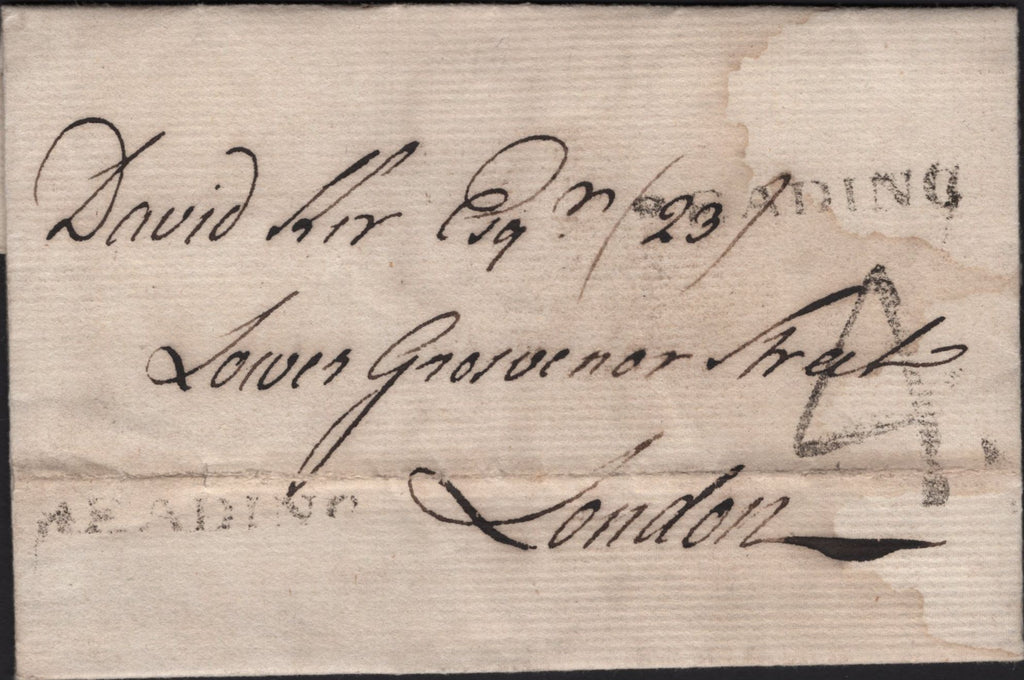 David Ker Esqr. (23)
READING
Lower Grosvenor Street
4
London
READING